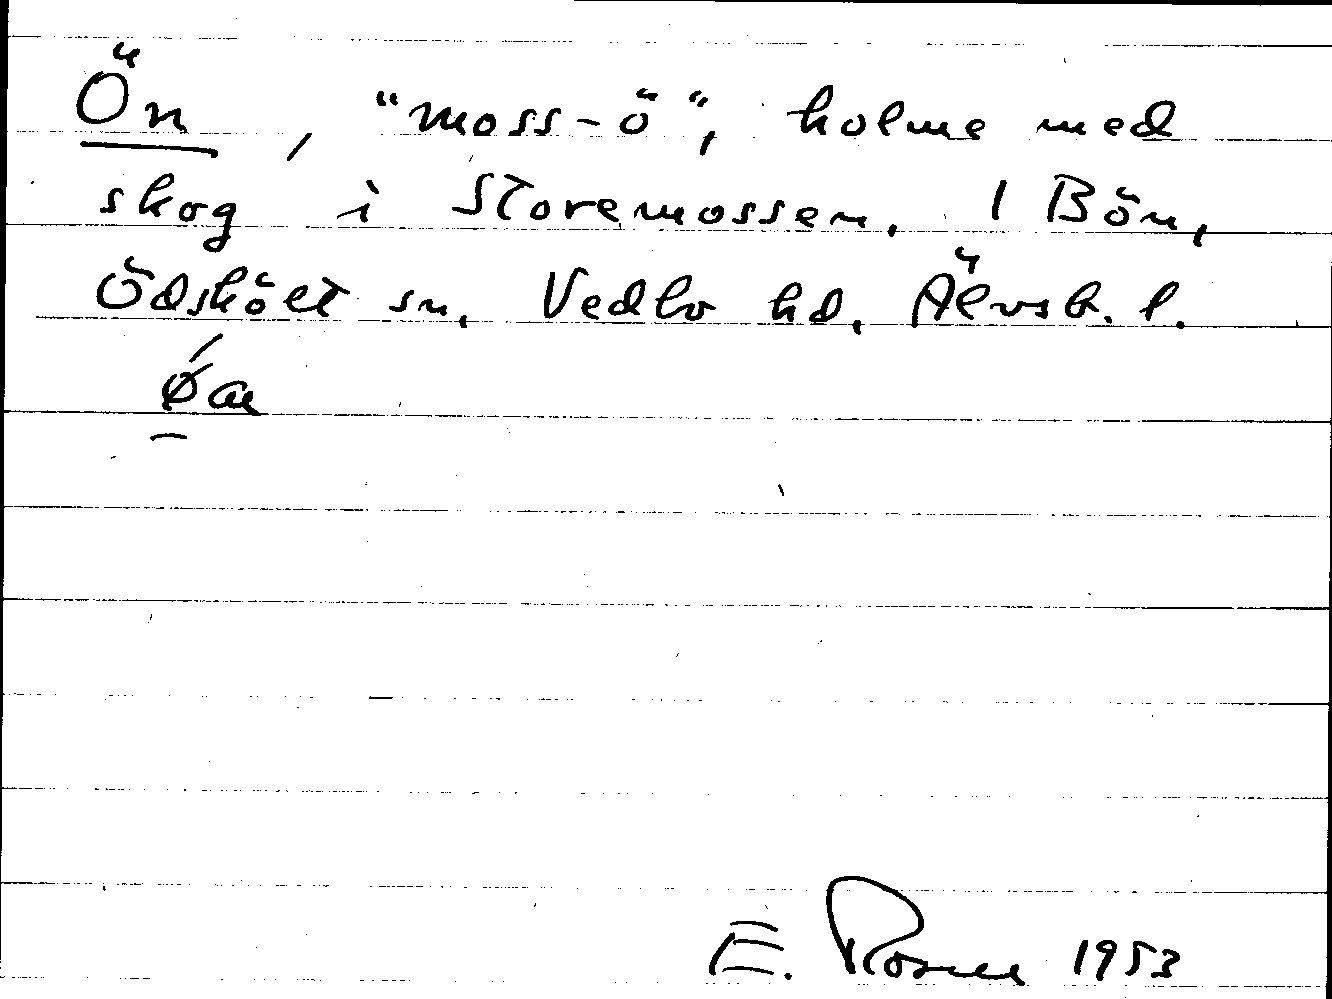 Ön, "moss-ö", holme med
skog i Storemossen. 1 Bön,
Ödskölt sn, Vedbo hd, Älvsb. l.
E. Rosell 1953